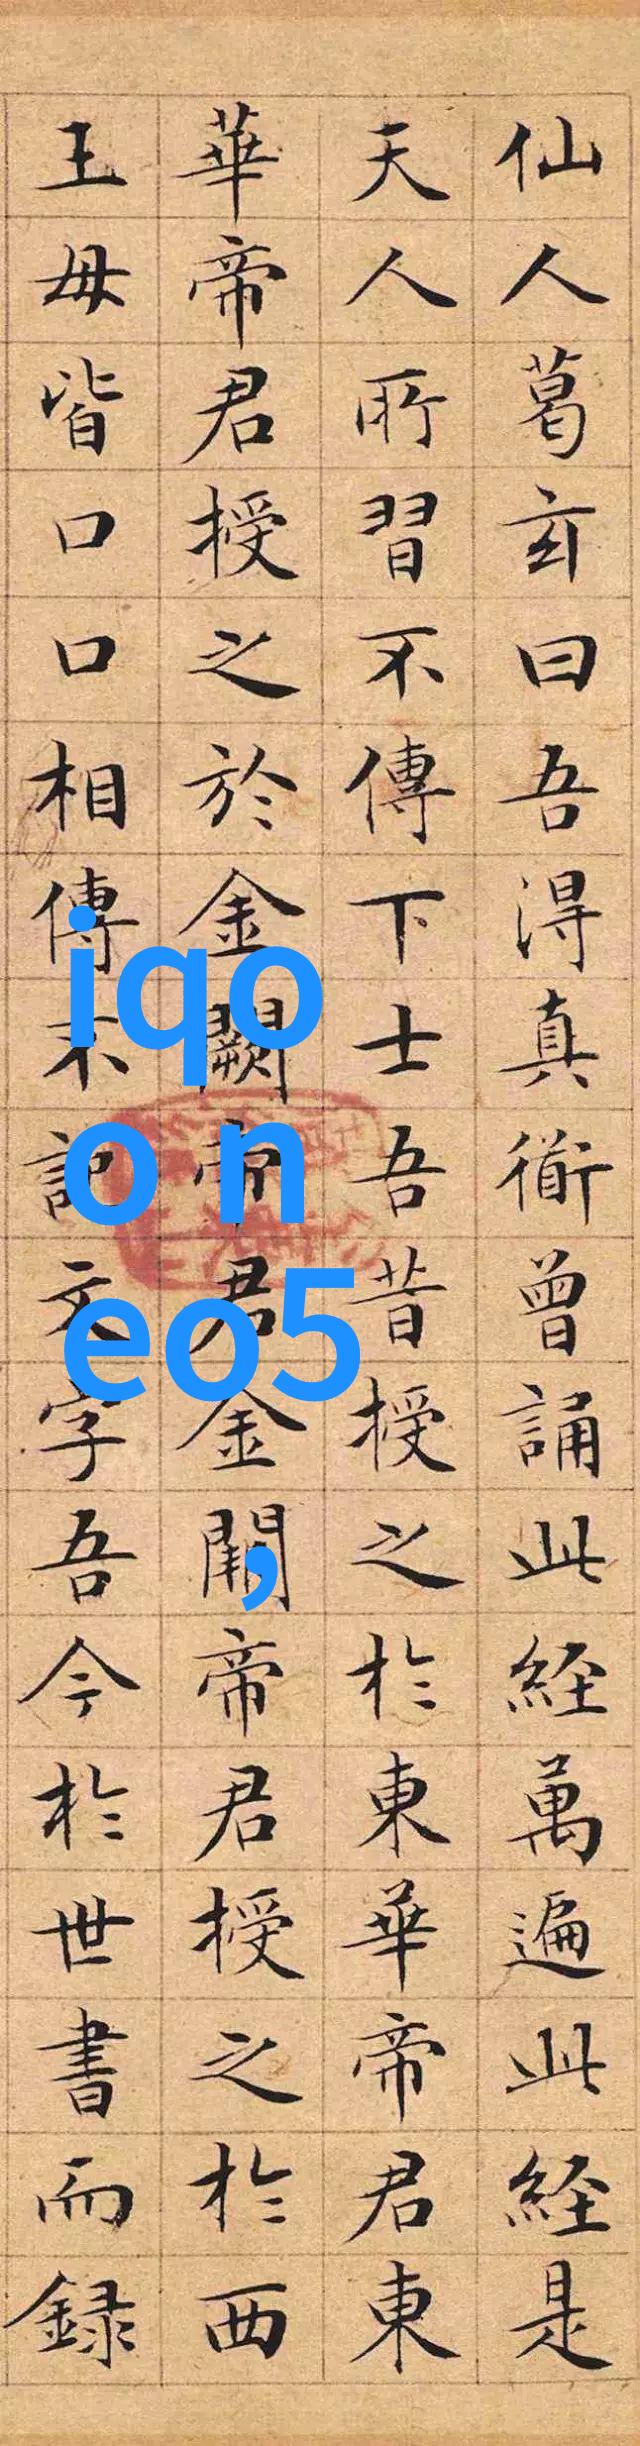 仙人葛玄曰吾得真衜曾誦此経萬遍此経是
天人所習不傳下士吾昔授之於東華帝君東
華帝君授之於金闕帝君金闕帝君授之於西
王母皆口口相傳不記文字吾今於世書而録
iqo
o n
eo5
,